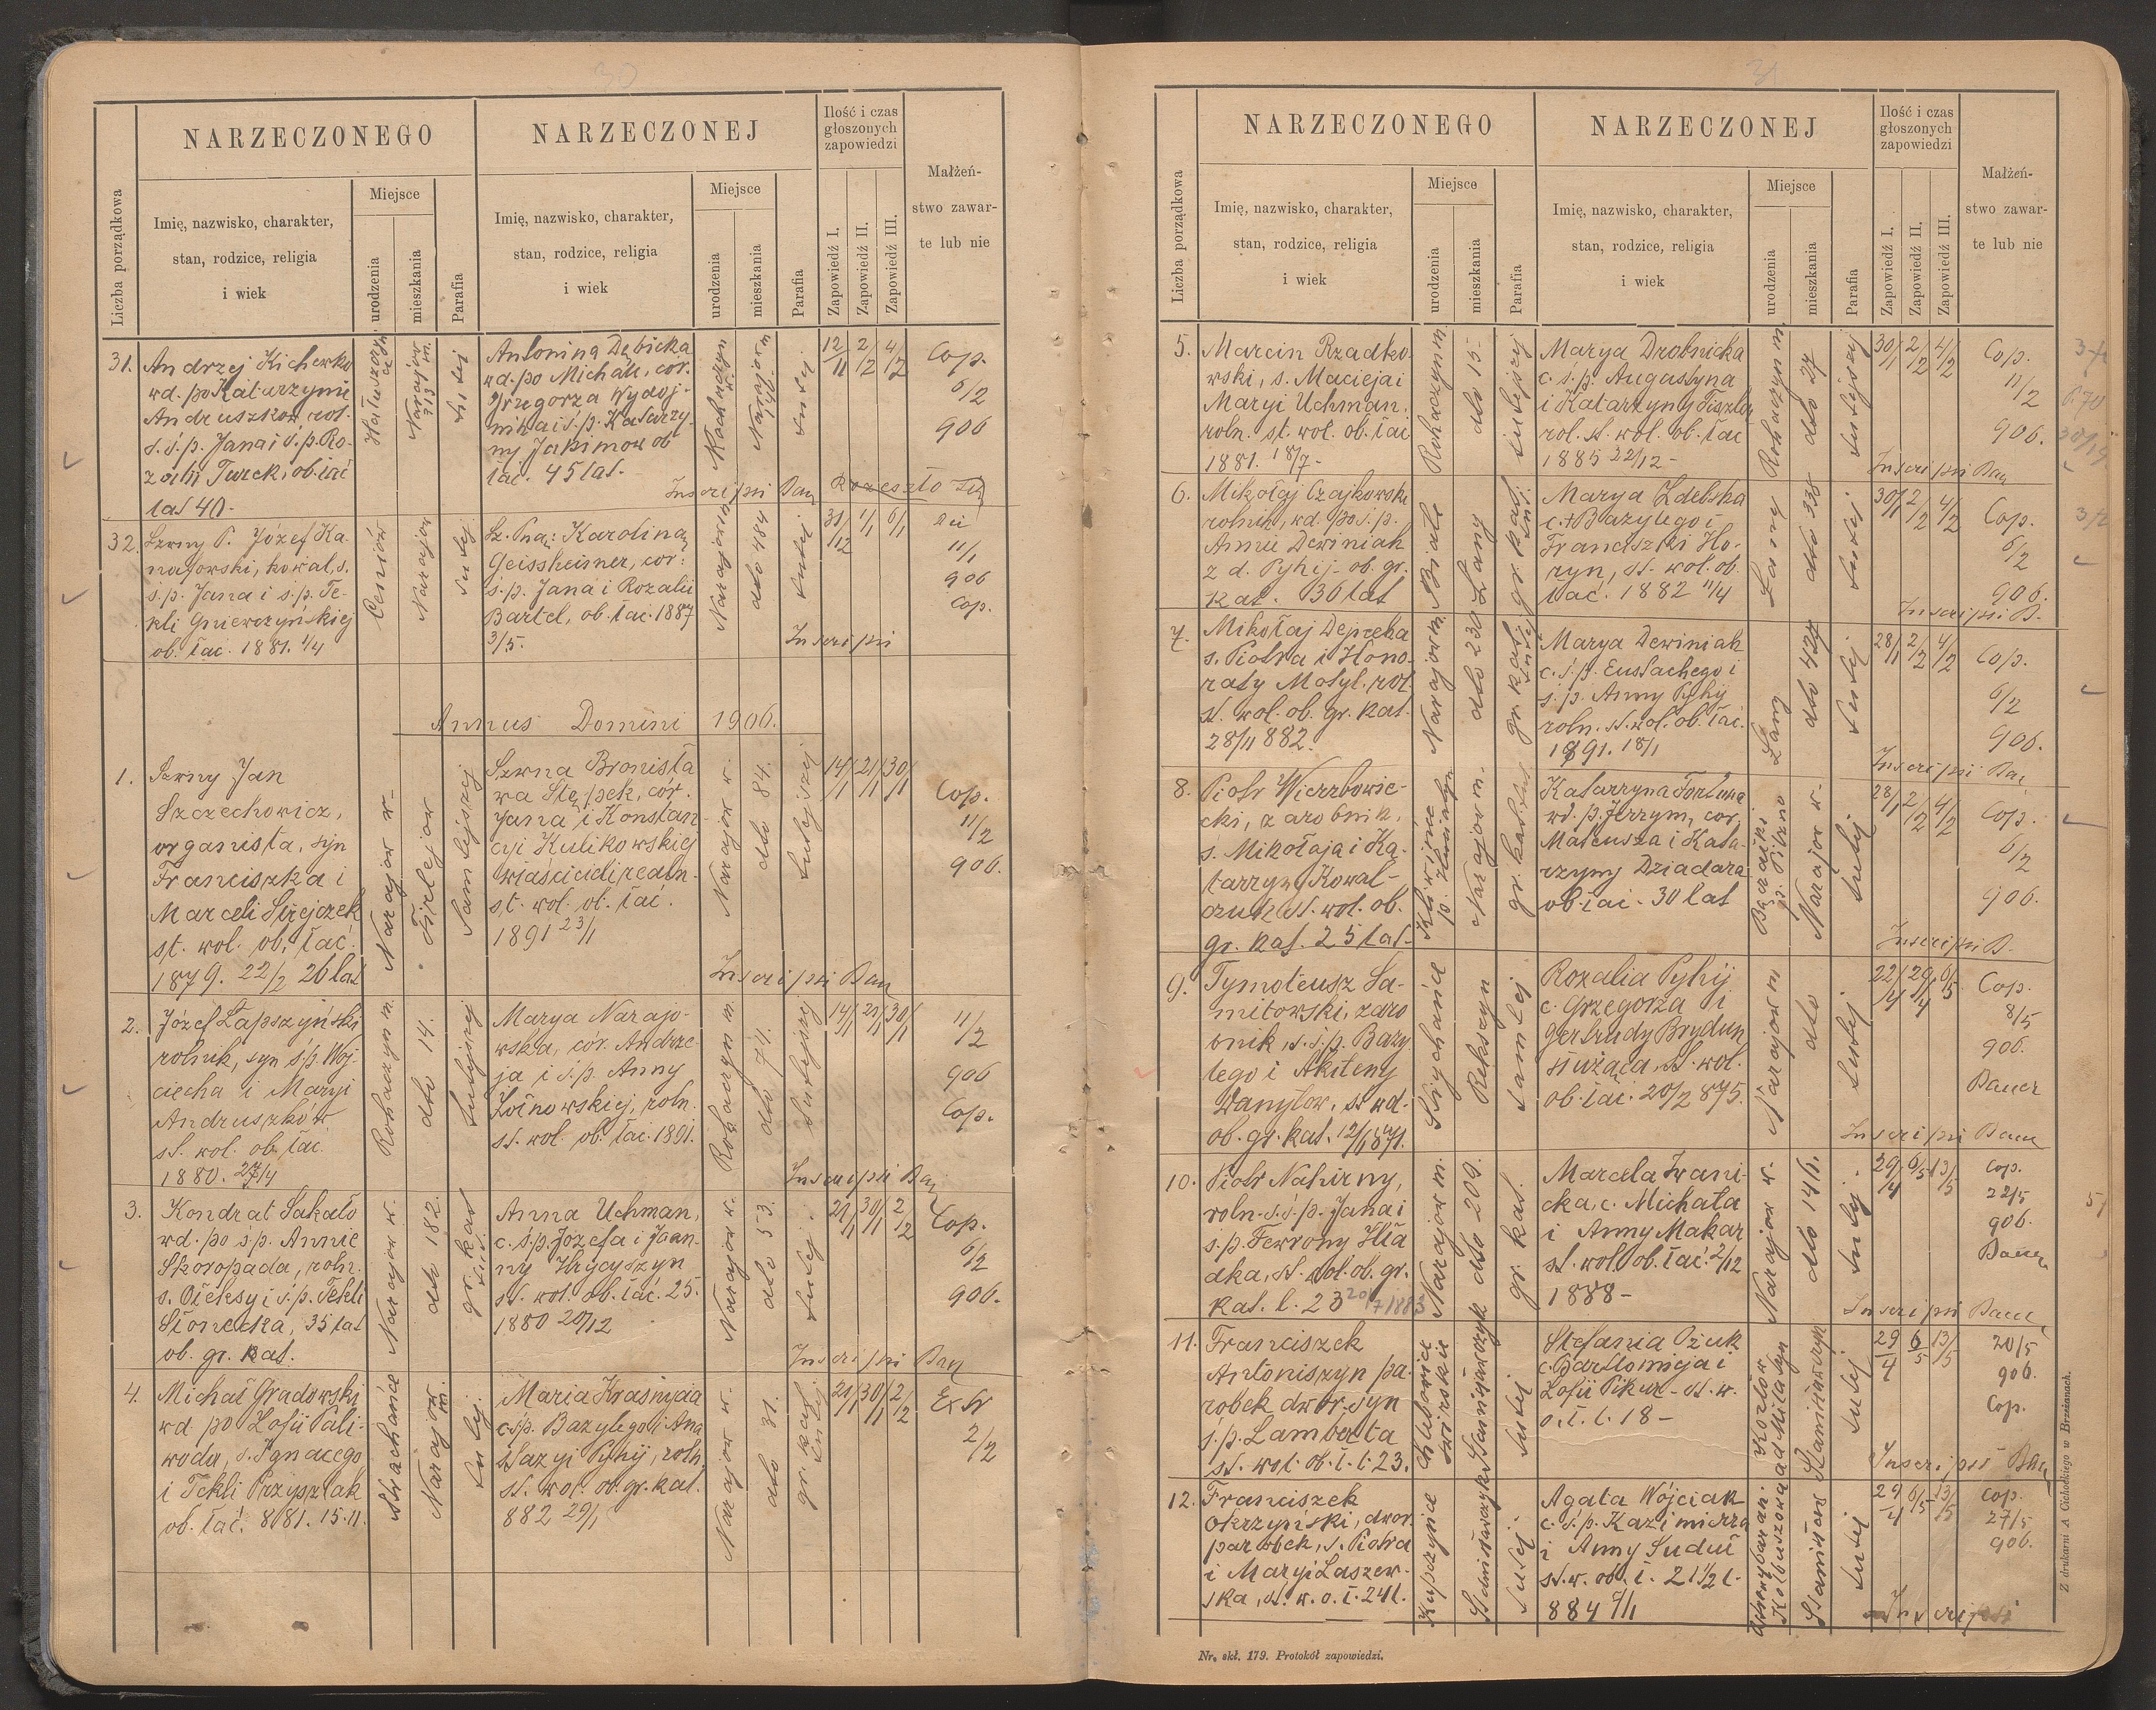 30
NARZECZONEGO
NARZECZONEJ
Ilość i czas
głoszonych
zapowiedzi
Małżeń-
stwo zawar-
te lub nie
Liczba porządkowa
Imię, nazwisko, charakter,
stan, rodzice, religia
i wiek
Miejsce
urodzenia
mieszkania
Parafia
Imię, nazwisko, charakter,
stan, rodzice, religia
i wiek
Miejsce
urodzenia
mieszkania
Parafia
Zapowiedź I.
Zapowiedź II.
Zapowiedź III.
31.
Andrzej
wd. po Katarzynie
Andruszków, rol.
s. ś. p. Jana i ś. p. Ro-
zalii Turek, ob. łać
lat 40.
Narajow m.
313
tutej
Antonina Dębicka
wd. po Michale, cór.
Grzegorza Wydoj-
nika i ś. p. Katarzy-
ny Jakimow ob
łać. 45 lat.
Narajow m
tutej.
12/11 2/2 4/2
Cop.
6/2
906
Inscripsi Bau
32.
Szwny P. Józef Ka-
najowski, kowal, s.
ś. p. Jana i ś. p. Te-
kli Gniewczyńskiej
ob. łać. 1881. 1/4
Ceniów
Narajow
tutej
Sz. Pna: Karolina
Geissheimer, cór:
ś. p. Jana i Rozalii
Bartel, ob. łać. 1887
3/5.
Narajow m
dto 484
tutej.
31/12 1/1 6/1
11/1
906
Cop.
Inscripsi
Annus Domini 1906.
1.
Szwny Jan
Szczechowicz,
organista, syn
Franciszka i
Marceli
st. wol. ob. łać.
1879. 22/2 26 lat
Narajow w-
Firlejow
tamtejszej
Szwna Bronisła
wa Stępek, cór.
Jana i Konstan-
cyi Kulikowskiej
właścicieli realn-
st. wol. ob. łać.
1891 23/1
Narajow w.
dto 84.
tutejszej
14/1 21/1 30/1
Cop.
11/2
906.
Inscripsi Bau
2.
Józef Łapszyński
rolnik, syn ś. p. Woj-
ciecha i Maryi
Andruszków
st. wol. ob. łać
1880. 27/4
Rohaczyn m.
dto 14.
tutejszej
Marya Narajo-
wska, cór. Andrze-
ja i ś. p. Anny
Zoinowskiej, roln.
st. wol. ob. łać. 1891.
Rohaczyn m.
dto 74.
tutejszej
14/1 21/1 30/1
11/2
906
Cop.
Inscripsi Bau
3.
Kondrat Sakało
wd. po ś. p. Annie
Skoropada, roln.
s. Oleksy i ś. p. Tekli
Słonecka, 35 lat
ob. gr. kat.
Narajow w.
dto 182.
gr. kat
tut.
Anna Uchman,
c. ś. p. Józefa i Joan-
ny Hrycyszyn
st. wol. ob. łać. 25.
1880 20/12
Narajow w.
dto 53.
tutej.
21/1 30/1 2/2
Cop.
6/2
906.
Inscripsi Bau
4.
Michał Gradowski
wd. po Zofii Pali-
woda, s. Ignacego
i Tekli Przyszlak
ob. łać. 881. 15.11.
Strychańce
Narajow
m.
tutej.
Maria Krasnycia
c. ś. p. Bazylego i Ana
stazyi Pyhij, roln.
st. wol. ob. gr. kat.
882 29/1
Narajow w.
dto 31.
gr. kat.
tutej
21/1 30/1 2/2
Ex tr
2/2
31
NARZECZONEGO
NARZECZONEJ
Ilość i czas
głoszonych
zapowiedzi
Małżeń-
stwo zawar-
te lub nie
Liczba porządkowa
Imię, nazwisko, charakter,
stan, rodzice, religia
i wiek
Miejsce
urodzenia
mieszkania
Parafia
Imię, nazwisko, charakter,
stan, rodzice, religia
i wiek
Miejsce
urodzenia
mieszkania
Parafia
Zapowiedź I.
Zapowiedź II.
Zapowiedź III.
5.
Marcin Rzadko-
wski, s. Macieja i
Maryi Uchman,
roln. st. wol. ob. łać
1881. 18/7 -
Rohaczyn m
dto 15-
tutejszej
Marya Drobnicka
c. ś. p. Augustyna
i Katarzyny Fiszter
rol. st. wol. ob. łać
1885 22/12 -
Rohaczyn m
dto 27
tutejszej
30/1 2/2 4/2
Cop.
11/2
906.
Inscripsi Bau
6.
Mikołaj Czajkowski
rolnik, wd. po ś. p.
Annie Dewiniak
z d. Pyhij - ob. gr.
kat. 36 lat
Białe
Łany
gr. kat.
tut.
Marya Zdebska
c. + Bazylego i
Franciszki Ho-
ryn, st. wol. ob.
łać. 1882 11/4
Łany
dto 338
tutej
30/1 2/2 4/2
Cop.
6/2
906.
Inscripsi B.
7.
Mikołaj Dejneka
s. Piotra i Hono-
raty Motyl. rol
st. wol. ob. gr. kat.
28/11 882.
Narajow m.
dto 230
gr. kat.
tutej
Marya Dewiniak
c. ś. p. Eustachego i
ś. p. Anny Pyhij
roln. st. wol. ob. łać.
1891. 18/1
Łany
dto 424
tutej
28/1 2/2 4/2
Cop.
6/2
906.
Inscripsi Bau
8.
Piotr Wierzbowie-
cki, zarobnik,
s. Mikołaja i Ka-
tarzyny Kowal-
czuk st. wol. ob.
gr. kat. 25 lat-
Narajow m.
gr. kat. tut
Katarzyna Fortuna
wd. p. Jerzym, cór.
Mateusza i Kata-
rzyny Dziadara
ob. łać - 30 lat
Narajow w-
tutej
28/1 2/2 4/2
Cop.
6/2
906.
Inscripsi B.
9.
Tymoteusz Sa-
mitowski, zaro
bnik, s. ś. p. Bazy
lego i Akiteny
Danyłow, st wd-
ob. gr. kat. 12/1 871.
Strychańce
Rekszyn
tamtej
Rozalia Pyhij
c. Grzegorza i
Gertrudy Brydun
służąca, st. wol.
ob. łać. 20/2 875.
Narajow m
dto
tutej.
22/4 29/4 6/5
Cop.
8/5
906.
Bauer
Inscripsi Bauer
10.
Piotr Nahirny,
roln. s. ś. p. Jana i
ś. p. Fewrony Hła
dka, st. wol. ob. gr.
kat. l. 23 20/7 1883
Narajow m.
dto 209.
gr. kat.
Marcela Iwani-
cka, c. Michała
i Anny Makar
st. wol. ob. łać. 2/12
1888 -
Narajow w.
dto 141.
tutej.
29/4 6/5 13/5
Cop.
22/5
906.
Bauer
Inscripsi Bauer
11.
Franciszek
Antoniszyn pa-
robek dwor. syn
ś. p. Lamberta
st. wol. ob. ł. l. 23.
Chlebowice
świrskie
Stanisławczyk
tutej
Stefania Ożuk
c. Bartłomieja i
Zofii Pikur - st. w.
o. ł. l. 18 -
Kozłów
Stanisławczyk
tutej
29/4 6/5 13/5
20/5
906.
Cop.
Inscripsi Bau
12.
Franciszek
Okrzyński, dwor.
parobek, s. Piotra
i Maryi Laszew-
ska, st. w. o. ł. 24 l.
Stanisławczyk
tutej.
Agata Wójciak
c. ś. p. Kazimierza
i Anny Suduł
st. w. ob. ł. 21 1/2 l.
884 7/11
tutej
29/4 6/5 13/5
Cop.
27/5
906.
Inscripsi
Nr. skł. 179. Protokół zapowiedzi.
Z drukarni A Cichockiego w Brzeżanach.